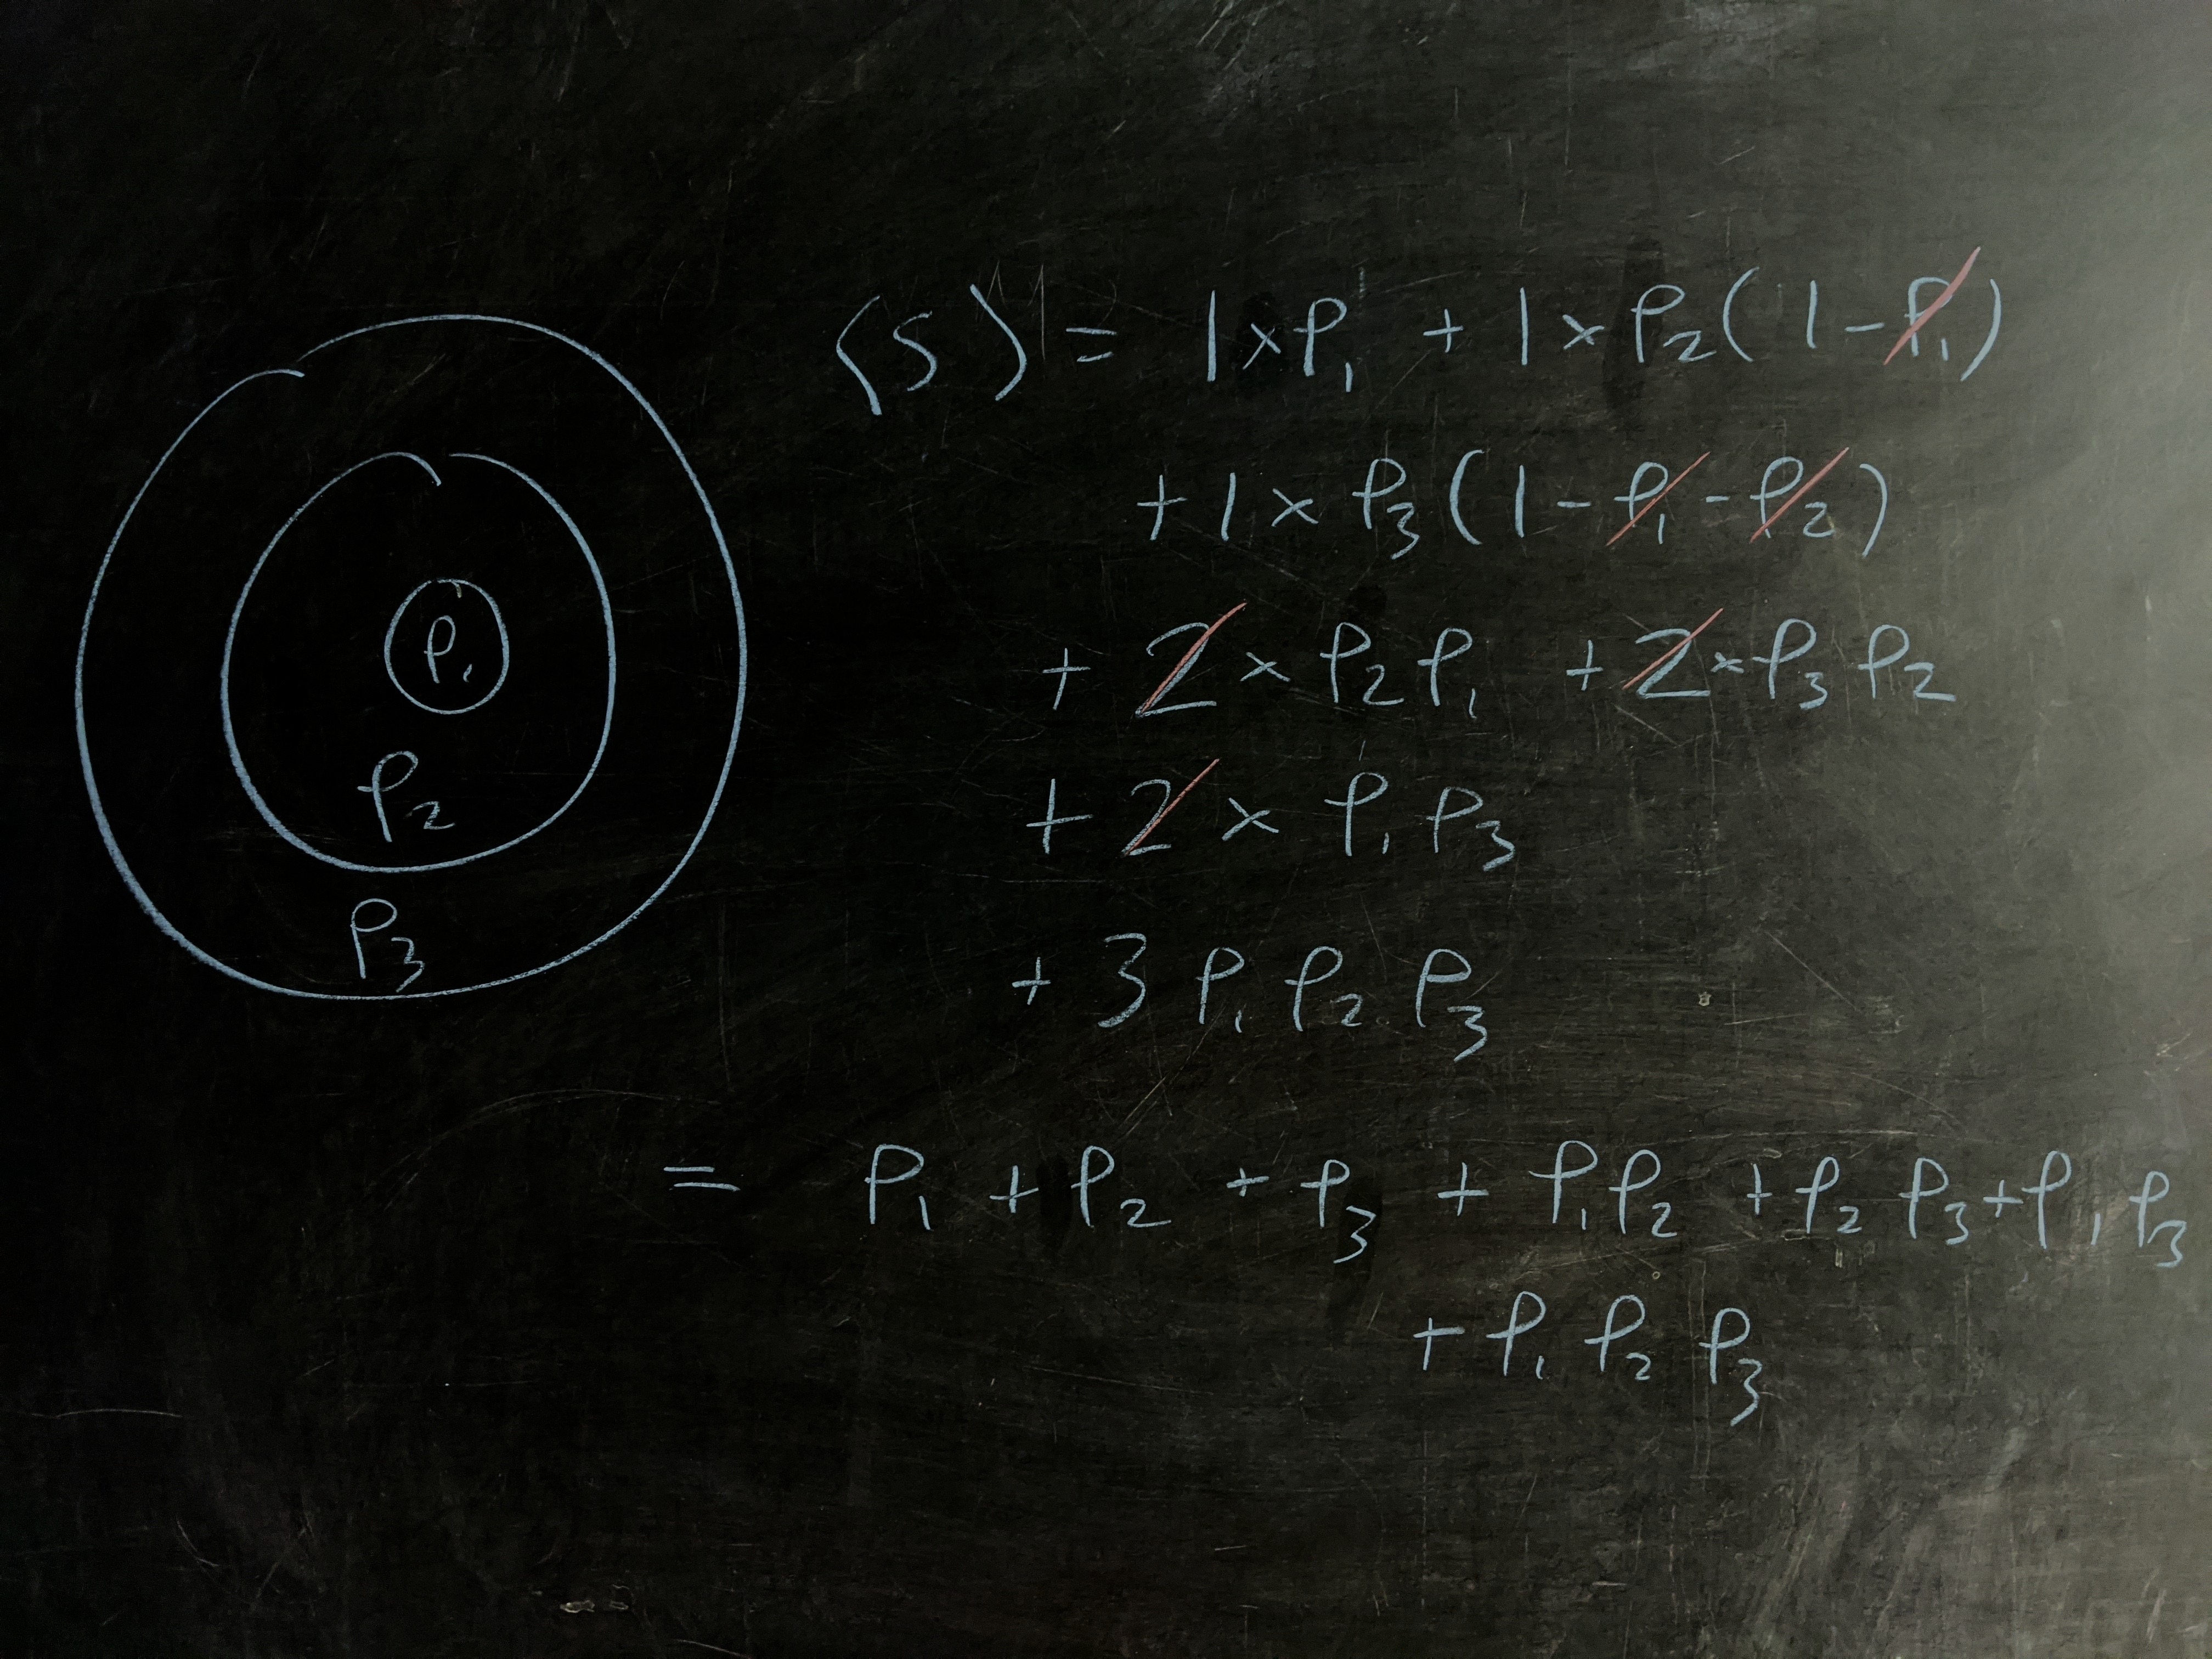 ⟨S⟩ = 1×P₁ + 1×P₂(1-P₁)
+ 1×P₃(1-P₁-P₂)
+ 2×P₂P₁ + 2×P₃P₂
+ 2×P₁P₃
+ 3P₁P₂P₃
= P₁ + P₂ + P₃ + P₁P₂ + P₂P₃ + P₁P₃
+ P₁P₂P₃
P₁
P₂
P₃